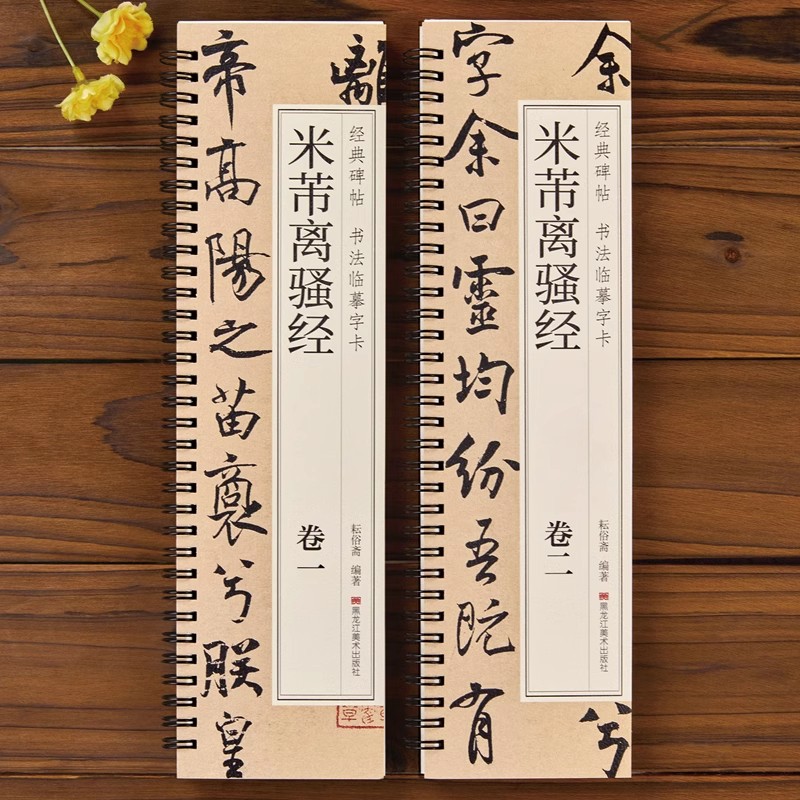 離
经典碑帖 书法临摹字卡
耘俗斋 编著
黑龙江美术出版社
米芾离骚经
卷一
帝高陽之苗裔兮朕皇
余
兮
经典碑帖 书法临摹字卡
耘俗斋 编著
黑龙江美术出版社
米芾离骚经
卷二
字余曰靈均紛吾既有